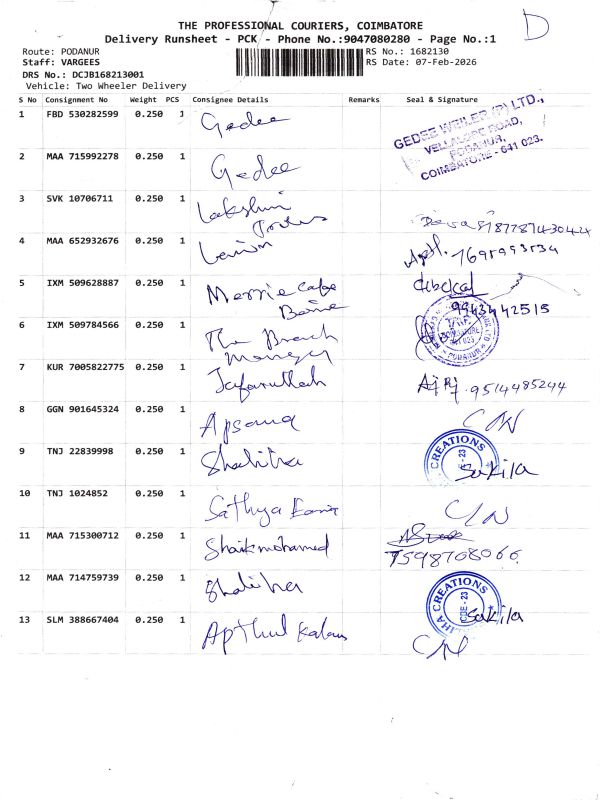 THE PROFESSIONAL COURIERS, COIMBATORE
D
Delivery Runsheet - PCK - Phone No.:9047080280 - Page No.:1
Route: PODANUR
RS No.: 1682130
Staff: VARGEES
RS Date: 07-Feb-2026
DRS No.: DCJB168213001
Vehicle: Two Wheeler Delivery
S No Consignment No Weight PCS Consignee Details Remarks Seal & Signature
1 FBD 530282599 0.250 1 Gedee
GEDEE WEILER (P) LTD.,
VELLALORE ROAD,
PODANUR,
COIMBATORE - 641 023.
2 MAA 715992278 0.250 1 Gedee
3 SVK 10706711 0.250 1 Lakshmi
4 MAA 652932676 0.250 1
5 IXM 509628887 0.250 1
9943442515
6 IXM 509784566 0.250 1 The Branch
Manager
7 KUR 7005822775 0.250 1 Jafarullah 9514485244
8 GGN 901645324 0.250 1 Apsana C/N
9 TNJ 22839998 0.250 1 Shaliha CREATIONS Sakila
10 TNJ 1024852 0.250 1 Sathya C/N
11 MAA 715300712 0.250 1 Shaikmohamed
7598768066
12 MAA 714759739 0.250 1 Shaliha CREATIONS Sakila
13 SLM 388667404 0.250 1 Apthul Kalam C/N